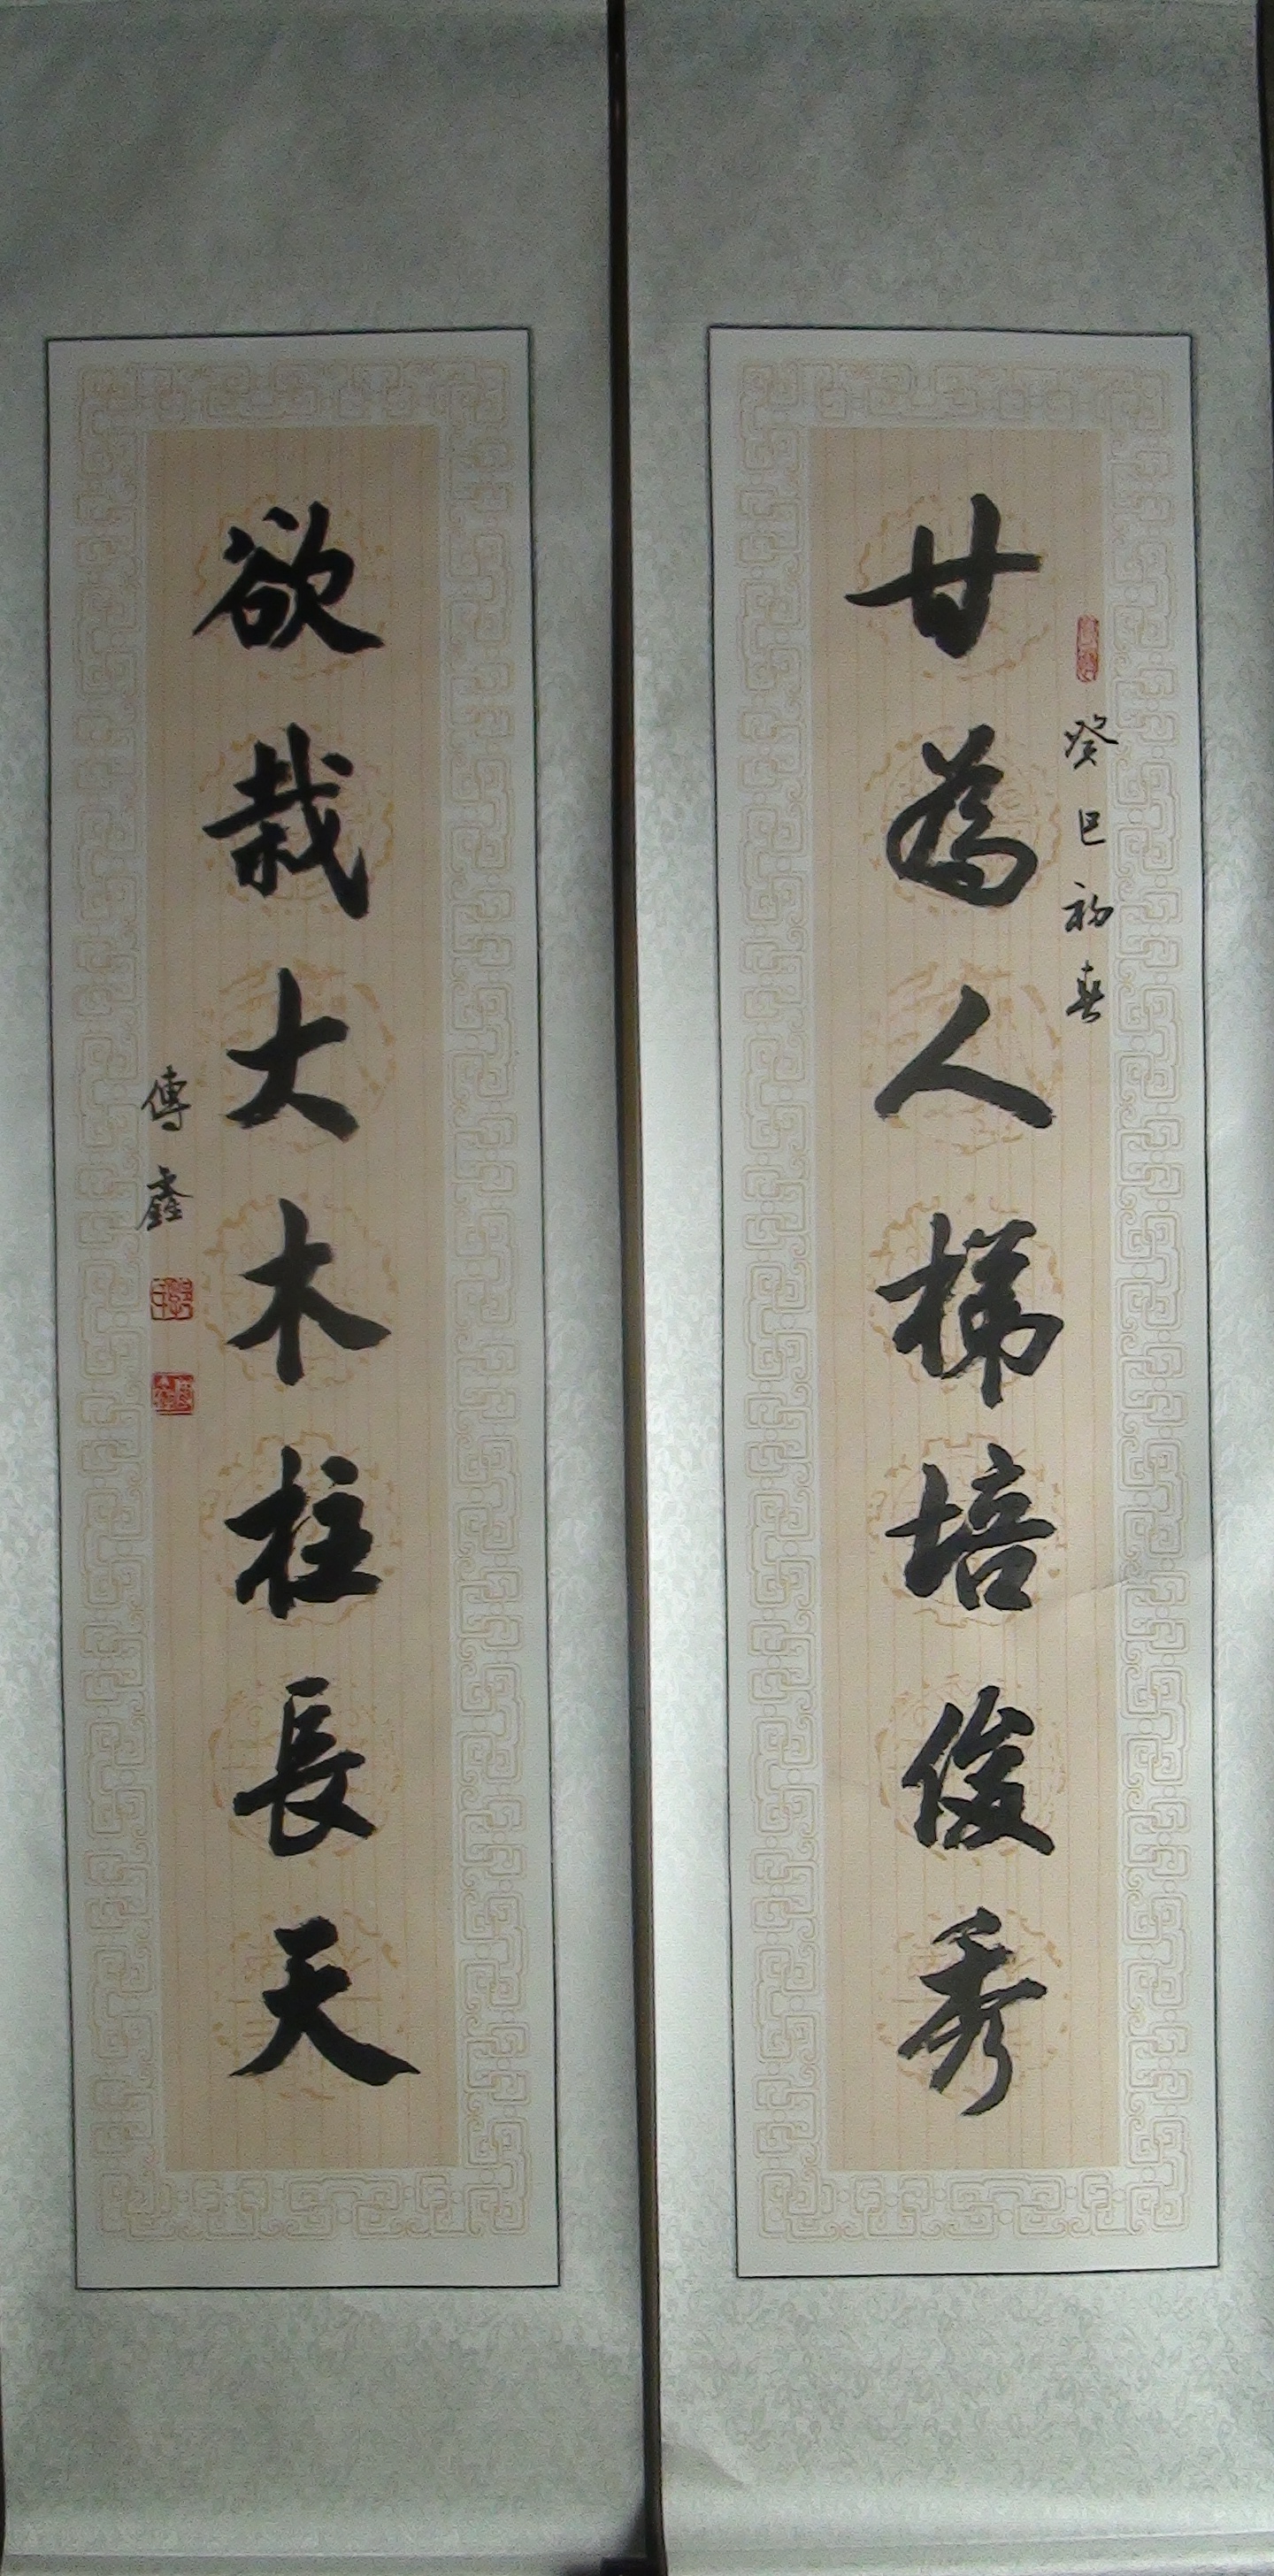 甘為人梯培俊秀
癸巳初春
欲栽大木柱長天
傳鑫